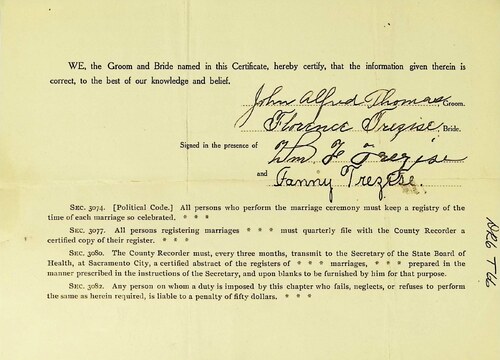 WE, the Groom and Bride named in this Certificate, hereby certify, that the information given therein is
correct, to the best of our knowledge and belief.
John Alfred Thomas, Groom.
Florence Trezise, Bride.
Signed in the presence of
Wm F Trezise
and
Fanny Trezise.
SEC. 3074. [Political Code.] All persons who perform the marriage ceremony must keep a registry of the
time of each marriage so celebrated. * * *
SEC. 3077. All persons registering marriages * * * must quarterly file with the County Recorder
a certified copy of their register. * * *
SEC. 3080. The County Recorder must, every three months, transmit to the Secretary of the State Board of
Health, at Sacramento City, a certified abstract of the registers of * * * marriages, * * * prepared in the
manner prescribed in the instructions of the Secretary, and upon blanks to be furnished by him for that purpose.
SEC. 3082. Any person on whom a duty is imposed by this chapter who fails, neglects, or refuses to perform
the same as herein required, is liable to a penalty of fifty dollars. * * *